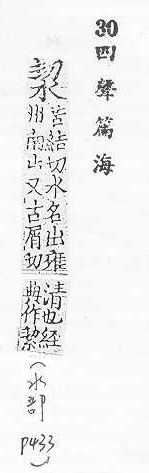 30 四聲篇海
苦結切水名出雍
州南山又古屑切
清也經
典作絜
（水部
P433）